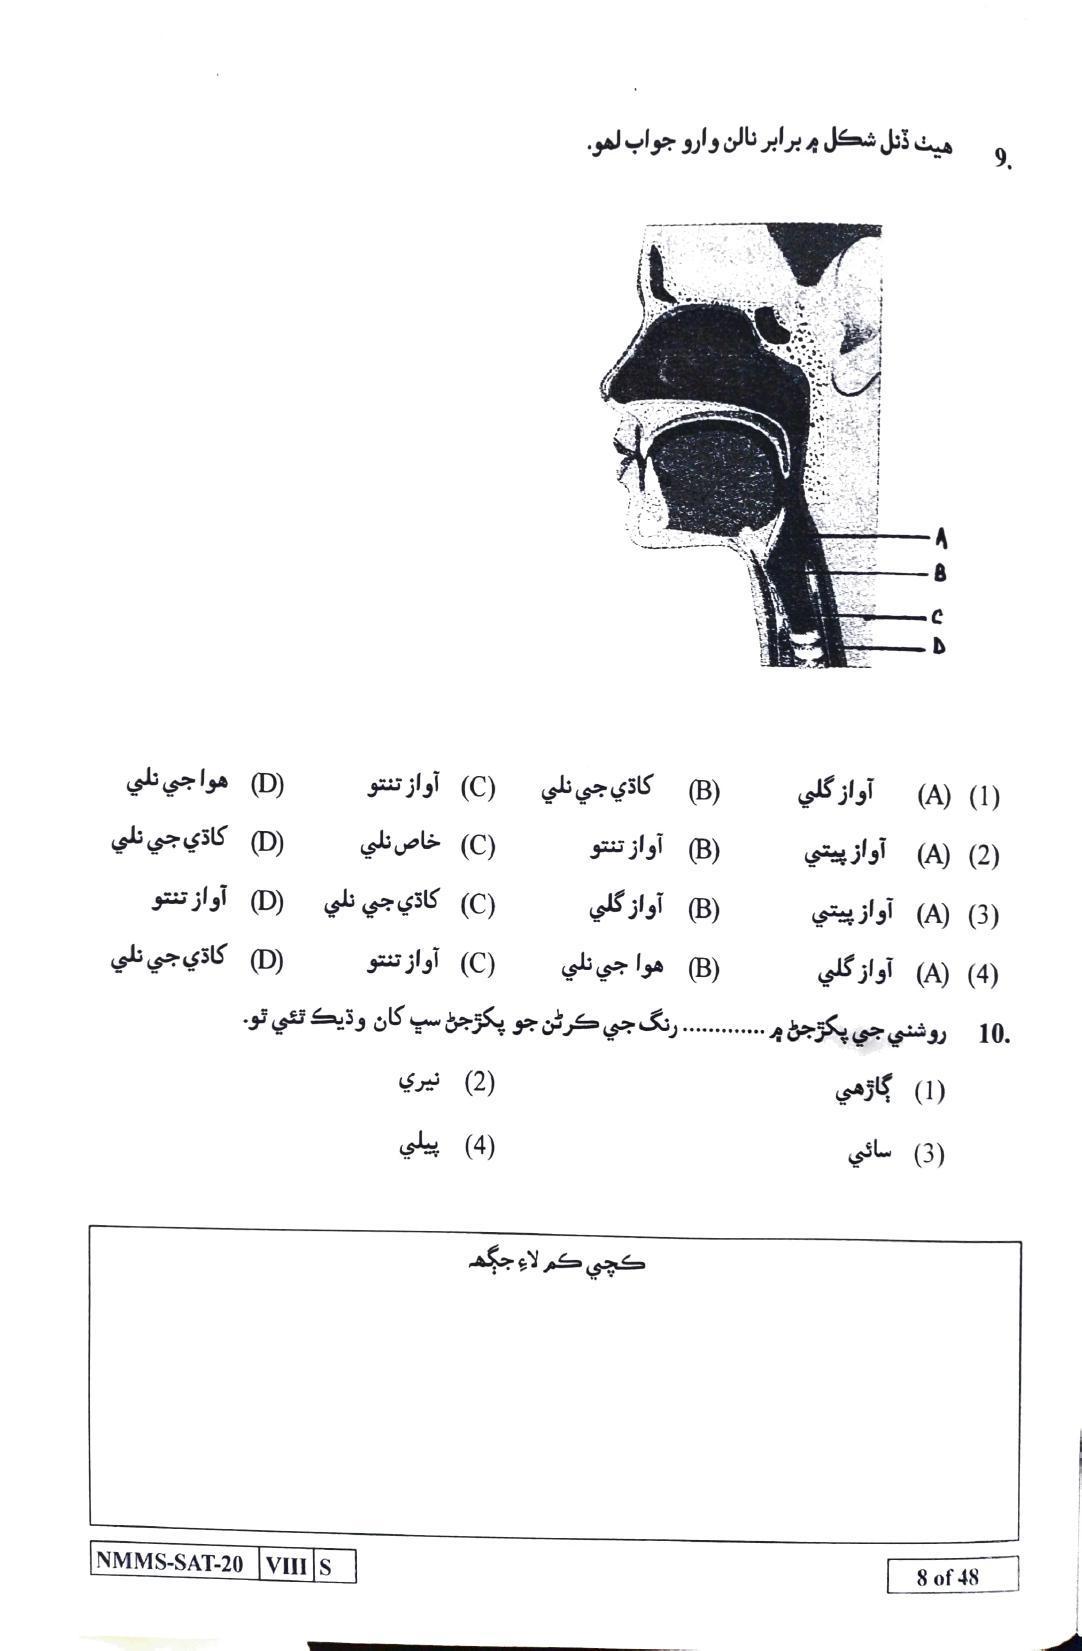 9. هيٺ ڏنل شڪل ۾ برابر نالن وارو جواب لهو.
A
B
C
D
(1) (A) آواز گلي (B) کاڌي جي نلي (C) آواز تنتو (D) هوا جي نلي
(2) (A) آواز پيٽي (B) آواز تنتو (C) خاص نلي (D) کاڌي جي نلي
(3) (A) آواز پيٽي (B) آواز گلي (C) کاڌي جي نلي (D) آواز تنتو
(4) (A) آواز گلي (B) هوا جي نلي (C) آواز تنتو (D) کاڌي جي نلي
10. روشني جي پکڙجڻ ۾ ............. رنگ جي ڪرڻن جو پکڙجڻ سڀ کان وڌيڪ ٿئي ٿو.
(1) ڳاڙهي (2) نيري
(3) سائي (4) پيلي
ڪچي ڪم لاءِ جڳهه
NMMS-SAT-20 VIII S 8 of 48